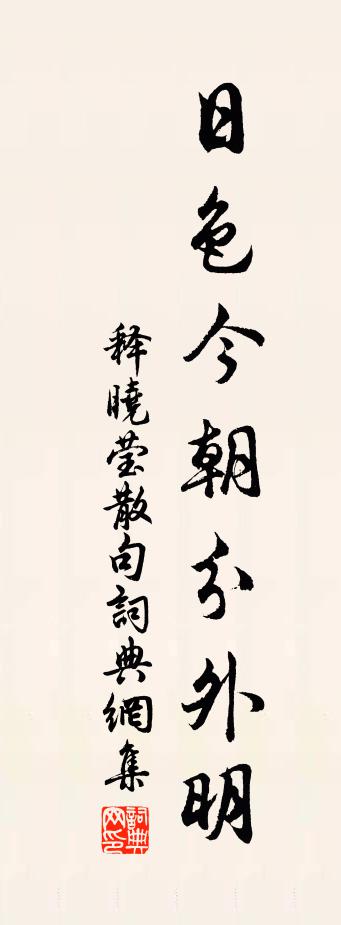 日色今朝分外明
释曉莹散句詞典網集
詞典网印